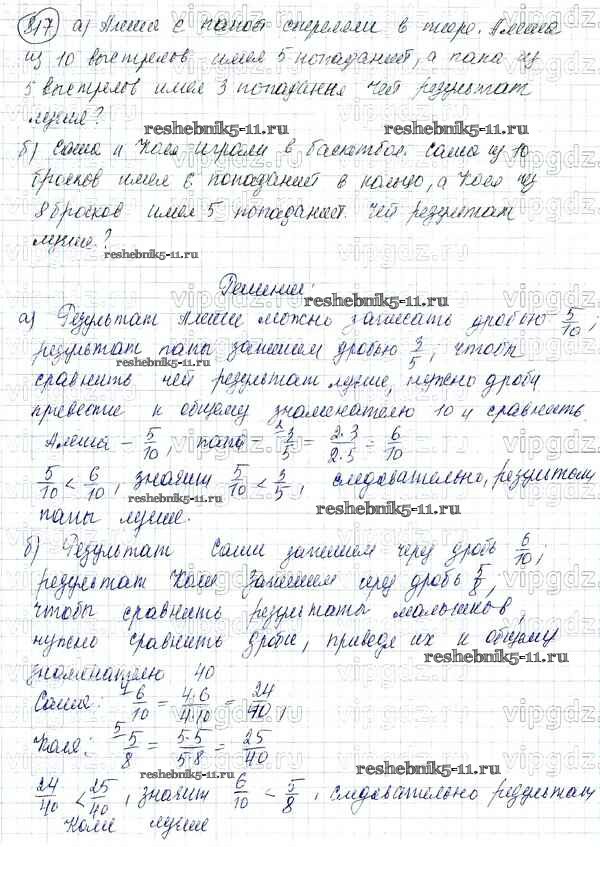 817 а) Алеша с папой стреляли в тире. Алеша
из 10 выстрелов имел 5 попаданий, а папа из
5 выстрелов имел 3 попадания. Чей результат
лучше?
reshebnik5-11.ru
б) Саша и Коля играли в баскетбол. Саша из 10
бросков имел 6 попаданий в кольцо, а Коля из
8 бросков имел 5 попаданий. Чей результат
лучше?
reshebnik5-11.ru
Решение:
reshebnik5-11.ru
а) Результат Алеши можно записать дробью 5/10;
результат папы запишем дробью 3/5; чтобы
сравнить чей результат лучше, нужно дроби
привести к общему знаменателю 10 и сравнить
Алеша – 5/10, папа = 2 3/5 = 2·3/2·5 = 6/10
5/10 < 6/10, значит 5/10 < 3/5, следовательно, результат
папы лучше.
reshebnik5-11.ru
reshebnik5-11.ru
б) Результат Саши запишем через дробь 6/10;
результат Коли запишем через дробь 5/8;
чтобы сравнить результаты мальчиков,
нужно сравнить дроби, приведя их к общему
знаменателю 40
reshebnik5-11.ru
Саша: 4 6/10 = 4·6/4·10 = 24/40,
Коля: 5 5/8 = 5·5/5·8 = 25/40
reshebnik5-11.ru
reshebnik5-11.ru
24/40 < 25/40, значит 6/10 < 5/8, следовательно результат
Коли лучше
reshebnik5-11.ru
vipgdz.ru